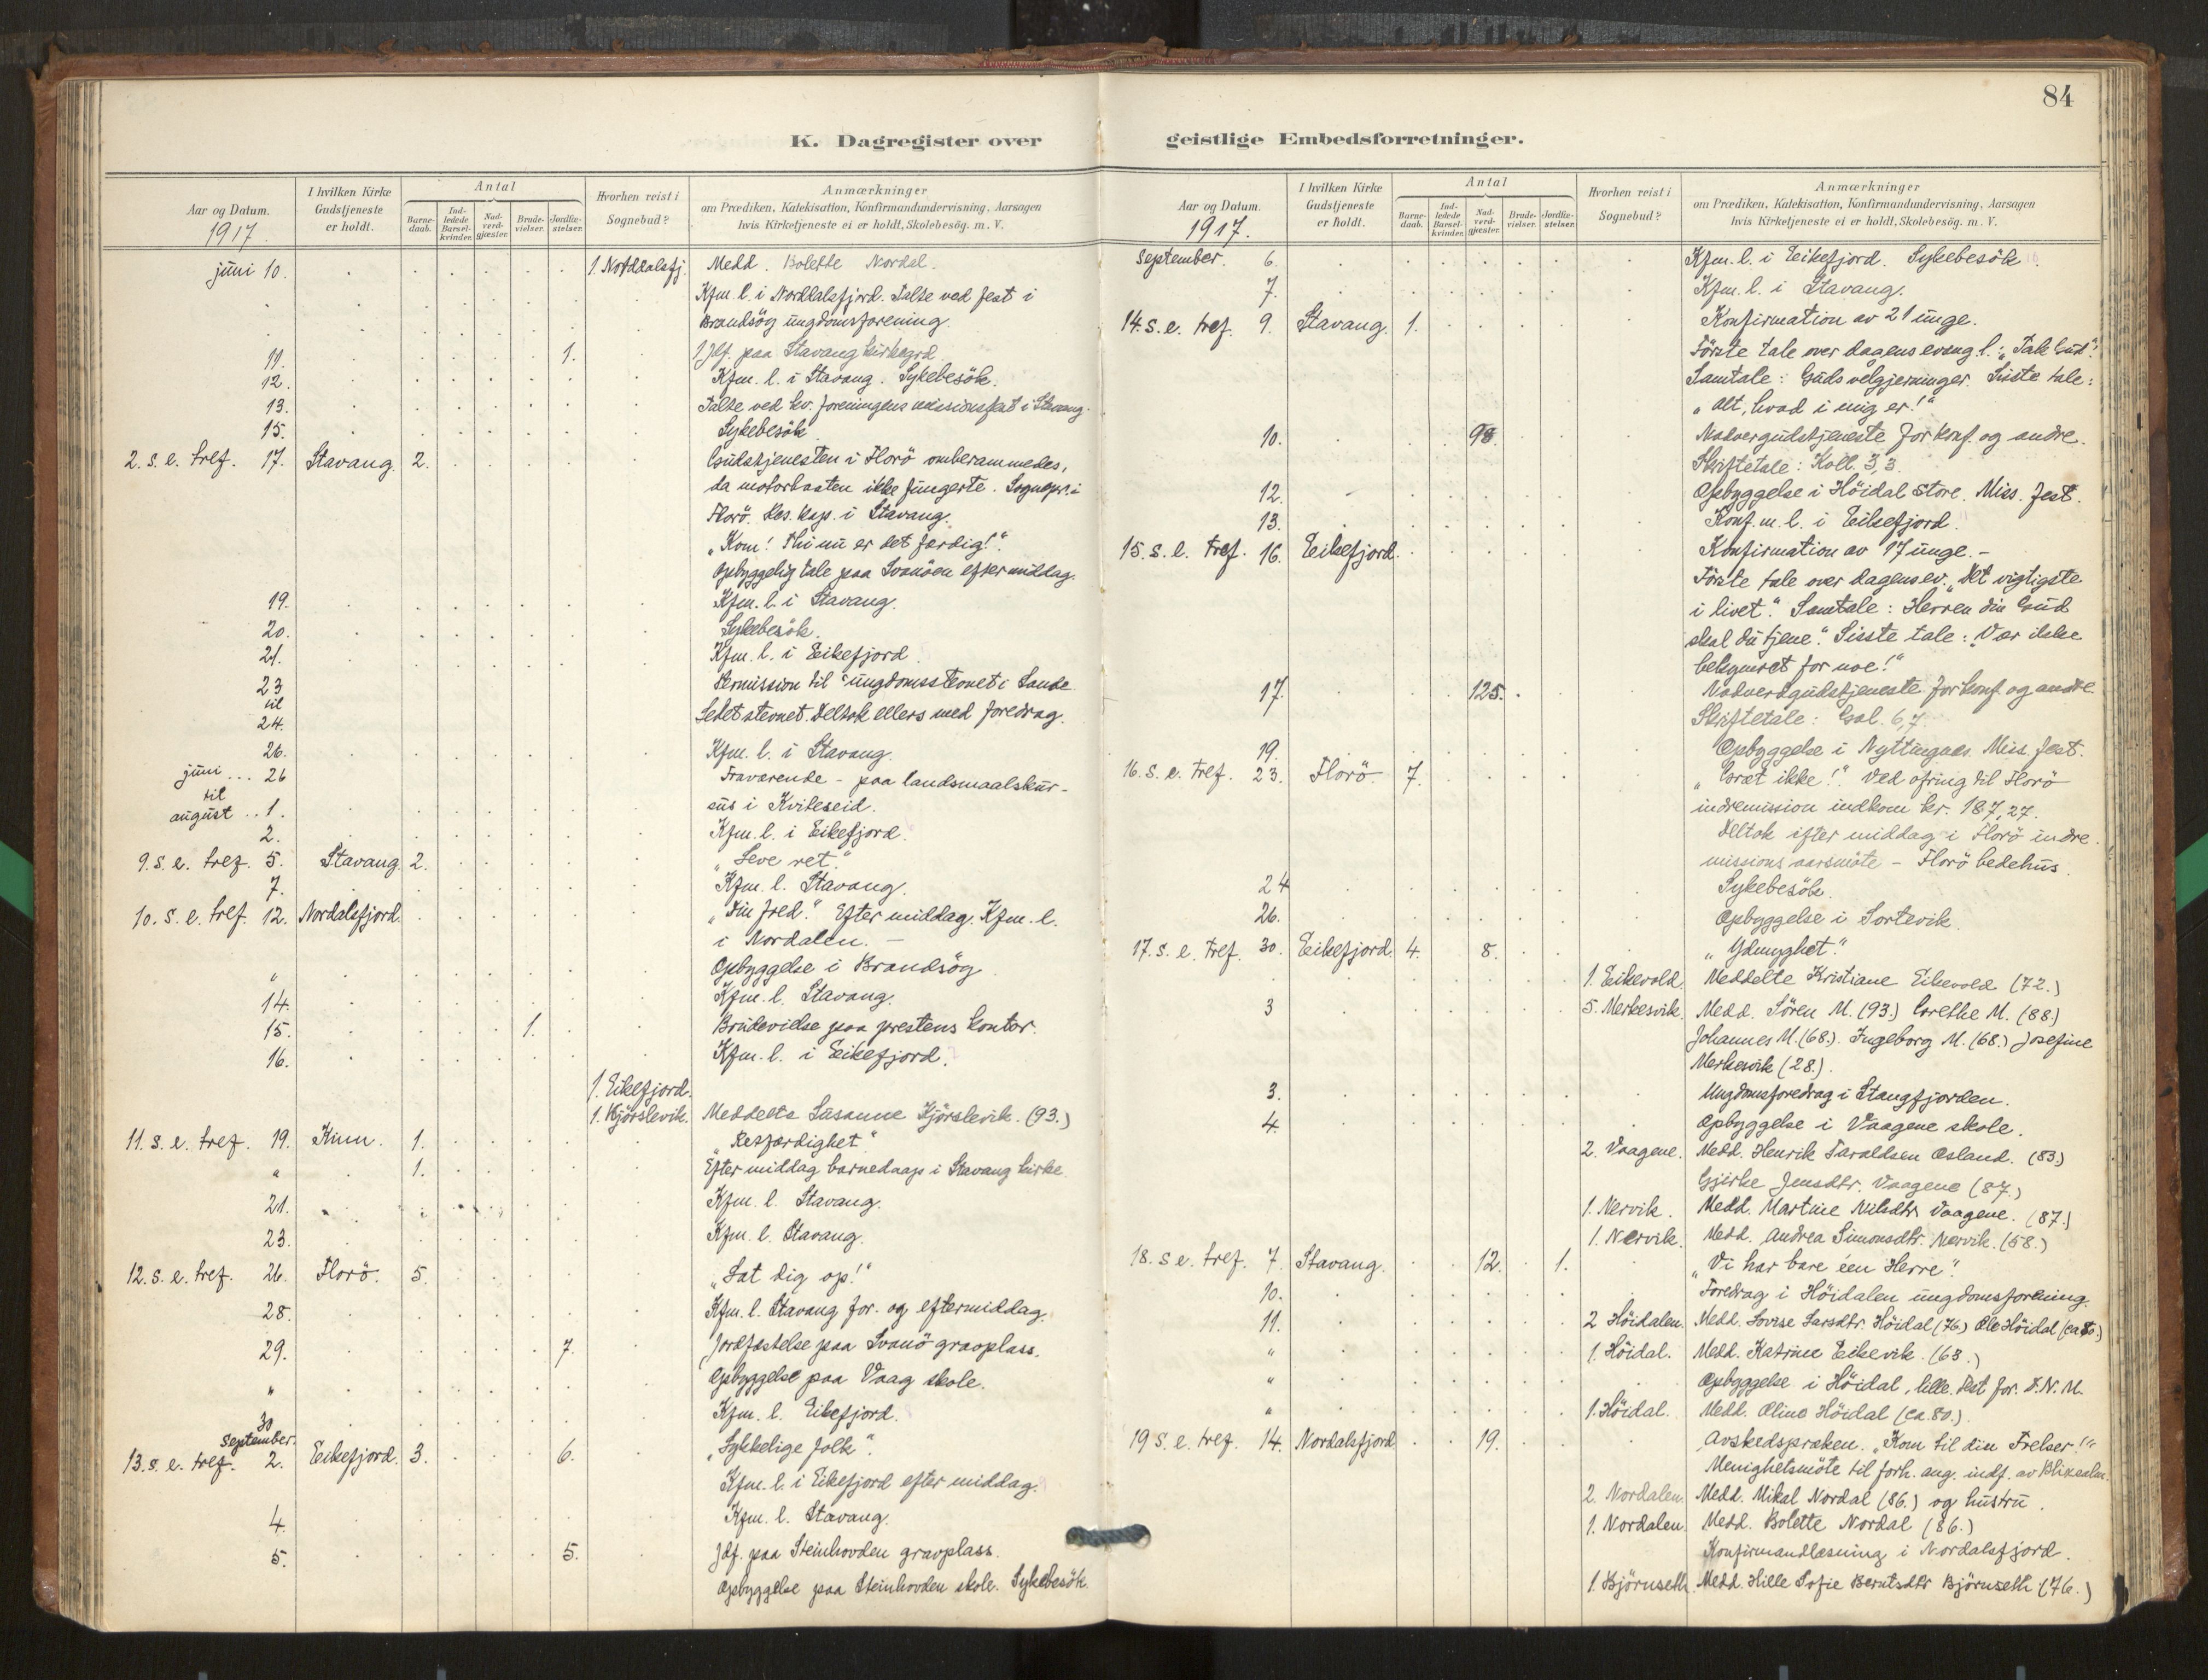 84
K. Dagregister over
Aar og Datum.
1917.
I hvilken Kirke
Gudstjeneste
er holdt.
Antal
Barne-
daab.
Ind-
ledede
Barsel-
kvinder.
Nad-
verd-
gjæster.
Brude-
vielser.
Jordfæ-
stelser.
Hvorhen reist i
Sognebud?
Anmærkninger
om Prædiken, Katekisation, Konfirmandundervisning, Aarsagen
hvis Kirketjeneste ei er holdt, Skolebesög. m. V.
juni 10. 1 Norddalsfj. Medd. Bolette Nordal.
Kfm. l. i Norddalsfjord. Talte ved fest i
Brandsög ungdomsforening.
11. 1. 1 Jdf. paa Stavang kirkegrd
12. Kfm. l. i Stavang. Sykebesök.
13. Talte ved kv. foreningens missionsfest i Stavang.
15. Sykebesök
2. s. e. tref. 17. Stavang. 2. Gudstjenesten i Florö omberammedes,
da motorbaaten ikke fungerte. Sognepr. i
Florö. Res. kap. i Stavang.
„Kom! Thi nu er det færdig!“.
Opbyggelig tale paa Svanöen eftermiddag.
19. Kfm. l. i Stavang.
20. Sykebesök.
21. Kfm. l. i Eikefjord.
23 Permission til ungdomsstevnet i Sande
til
24. Ledet stevnet. Deltok ellers med foredrag.
26. Kfm. l. i Stavang.
juni ... 26 Fraværende - paa landsmaalskur-
til
august .. 1. sus i Kviteseid.
2. Kfm. l. i Eikefjord.
9. s. e. tref. 5. Stavang. 2. „Leve ret.“
7. Kfm. l. Stavang.
10. s. e. tref. 12. Nordalsfjord. „Din fred.“ Eftermiddag. Kfm. l.
i Nordalen. -
„ Opbyggelse i Brandsög
14. Kfm. l. Stavang.
15. 1. Brudevielse paa prestens kontor.
16. Kfm. l. i Eikefjord.
1. Eikefjord.
1. Kjörslevik. Meddelte Susanne Kjörslevik. (93.)
11. s. e. tref. 19. Kinn. 1. „Retfærdighet“
„ 1. Eftermiddag barnedaap i Stavang kirke
21. Kfm. l. Stavang.
23. Kfm. l. Stavang.
12. s. e. tref. 26. Florö. 5. „Lat dig op!“
28. Kfm. l. Stavang for- og eftermiddag.
29. 7. Jordfæstelse paa Svanö gravplass.
„ Opbyggelse paa Vaag skole.
30 Kfm. l. Eikefjord.
September.
13. s. e. tref. 2. Eikefjord. 3. 6. „Lykkelige folk“.
Kfm. l. i Eikefjord eftermiddag.
4. Kfm. l. Stavang.
5. 5. Jdf. paa Steinhovden gravplass.
Opbyggelse paa Steinhovden skole. Sykebesök.
geistlige Embedsforretninger.
Aar og Datum.
1917.
I hvilken Kirke
Gudstjeneste
er holdt.
Antal
Barne-
daab.
Ind-
ledede
Barsel-
kvinder.
Nad-
verd-
gjæster.
Brude-
vielser.
Jordfæ-
stelser.
Hvorhen reist i
Sognebud?
Anmærkninger
om Prædiken, Katekisation, Konfirmandundervisning, Aarsagen
hvis Kirketjeneste ei er holdt, Skolebesög. m. V.
September. 6. Kfm. l. i Eikefjord. Sykebesök.
7. Kfm. l. i Stavang.
14. s. e. tref. 9. Stavang. 1. Konfirmation av 21 unge.
Förste tale over dagens evang l.: „Tak Gud“!
Samtale: Guds velgjerninger. Sisste tale:
„Alt, hvad i mig er!“
10. 98. Nadvergudstjeneste for konf. og andre.
Skriftetale: Koll. 3,3.
12. Opbyggelse i Höidal store. Miss. fest.
13. Konf. m. l. i Eikefjord.
15. s. e. tref. 16. Eikefjord. Konfirmation av 17 unge. -
Förste tale over dagens ev. „Det vigtigste
i livet“. Samtale: Herren din Gud
skal du tjene.“ Sisste tale: „Vær ikke
bekymret for noe!“
17. 125. Nadverdgudstjeneste for konf og andre.
Skriftetale: Gal. 6,7.
19. Opbyggelse i Nyttingnes. Miss. fest.
16. s. e. tref. 23. Florö. 7. „Græt ikke!“ Ved ofring til Florö
indremission indkom kr. 187,27.
Deltok eftermiddag i Florö indre
missions aarsmöte - Florö bedehus.
24 Sykebesök.
26. Opbyggelse i Sortevik.
17. s. e. tref. 30. Eikefjord. 4. 8. „Ydmyghet“.
1. Eikevold. Meddelte Kristiane Eikevold (72.)
3 5. Merkesvik. Medd. Sören M. (93.) Grethe M. (88.)
Johannes M. (68.). Ingeborg M. (68.) Josefine
Merkesvik (28.).
3. Ungdomsforedrag i Stangfjorden.
4. Opbyggelse i Vaagene skole.
2. Vaagene. Medd. Henrik Taraldsen Osland. (83.)
Gjirke Jensdtr. Vaagene (87.)
1. Nervik. Medd. Martine Nilsdtr Vaagene. (87.)
1. Nervik. Medd. Andrea Simonsdtr. Nervik. (58.)
18. s e. tref. 7. Stavang. 12. 1. „Vi har bare éen Herre“.
10. Foredrag i Höidalen ungdomsforening.
11. 2 Höidalen. Medd. Lovise Larsdtr. Höidal (76.) Ole Höidal (ca 80.)
„ 1. Höidal. Medd. Katrine Eikevik. (63.)
„ Opbyggelse i Höidal, lille. Fest for. D. N. M.
„ 1. Höidal. Medd. Oline Höidal (ca. 80.)
19 s. e. tref. 14. Nordalsfjord. 19. Avskedspræken. „Kom til din Frelser!“
Menighetsmöte til forh. ang. indf. av
2. Nordalen. Medd. Mikal Nordal (86.) og hustru.
1. Nordalen. Medd. Bolette Nordal (86.)
Konfirmandlæsning i Nordalsfjord.
1. Björnseth. Medd. Hille Sofie Berntsdtr Björnseth (76.)